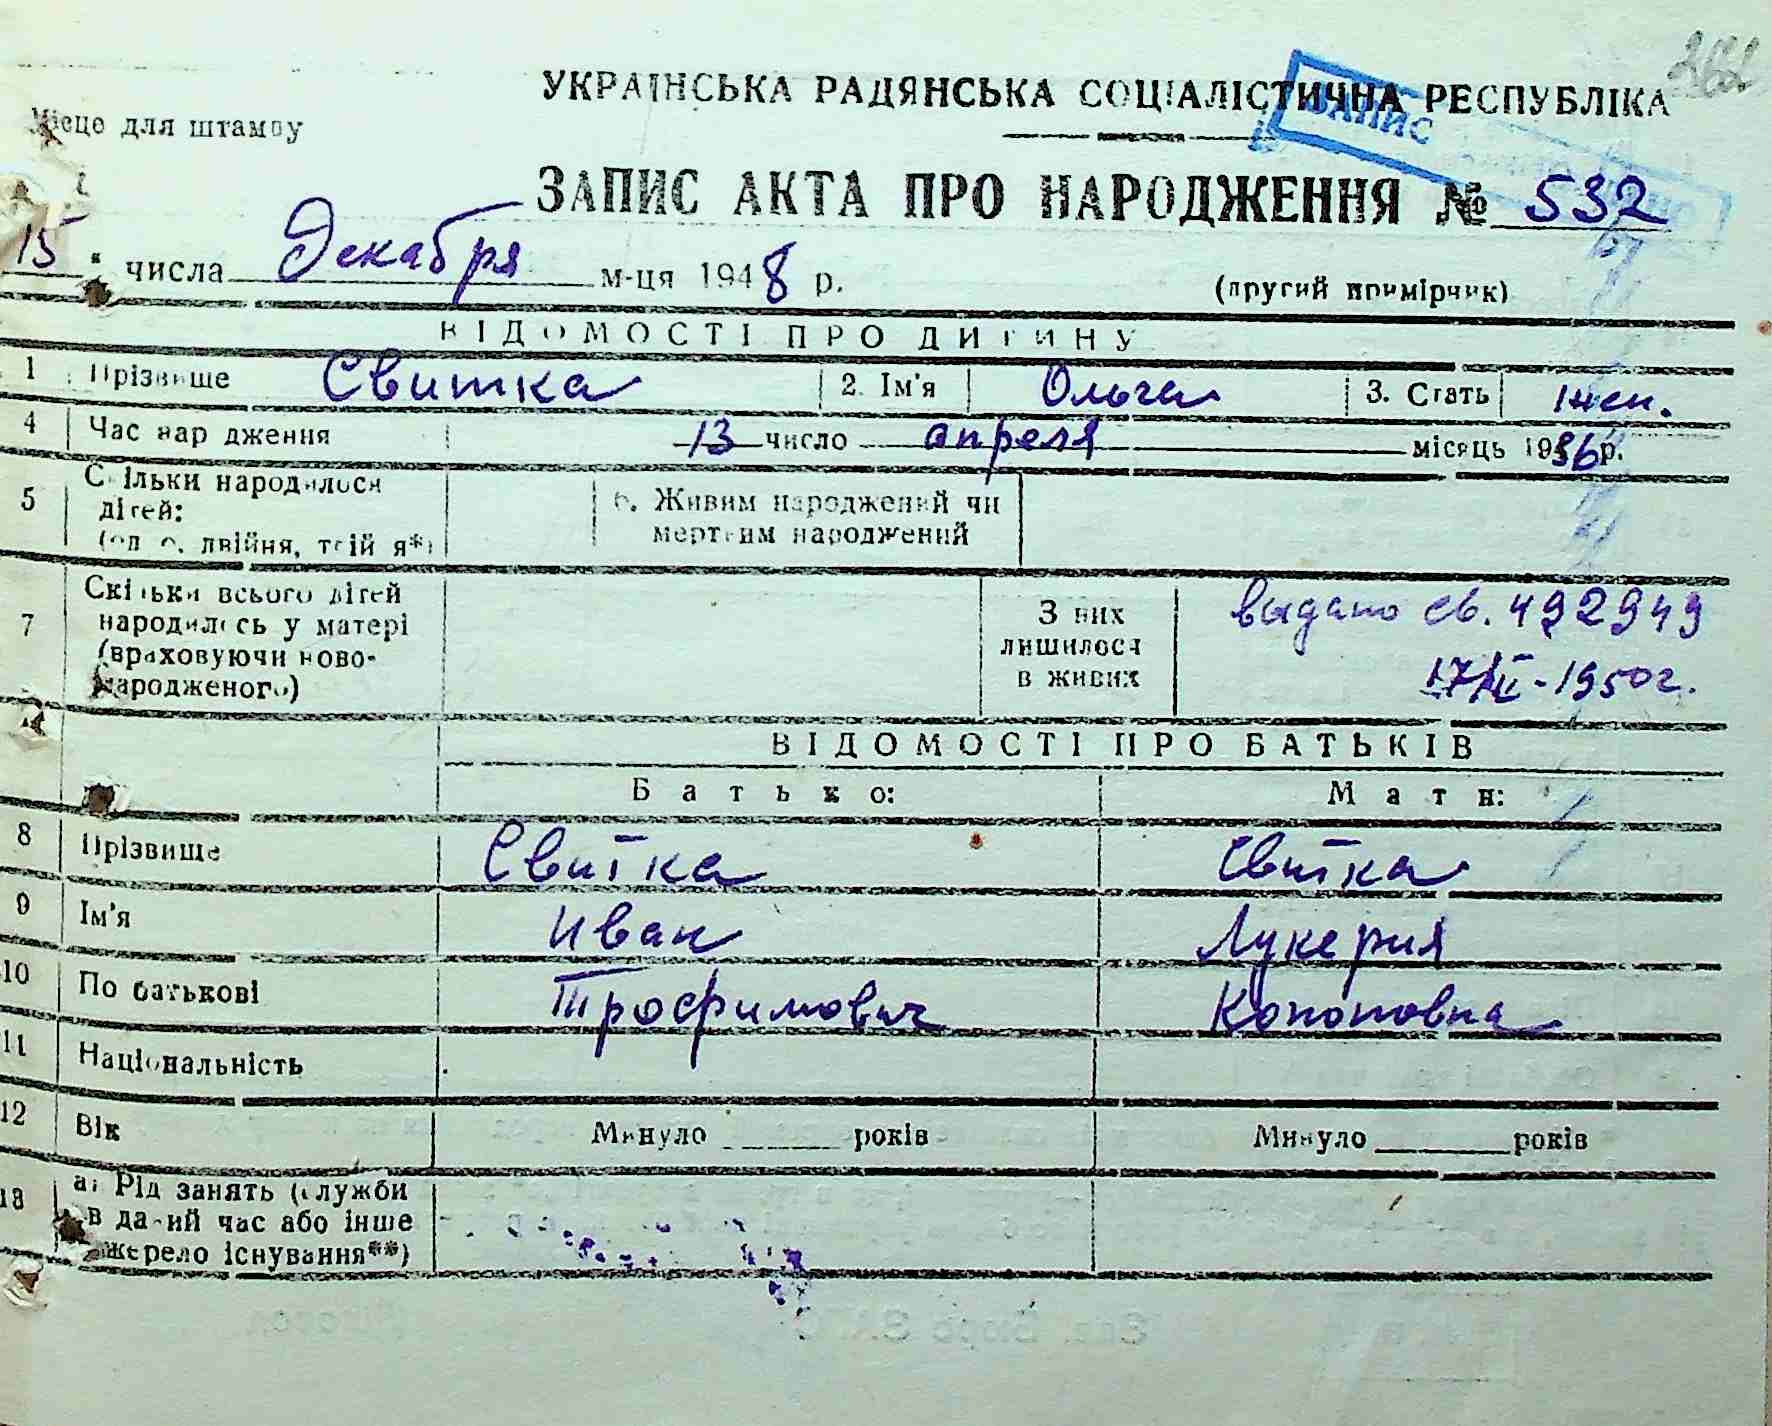 УКРАЇНСЬКА РАДЯНСЬКА СОЦІАЛІСТИЧНА РЕСПУБЛІКА
Місце для штампу
ЗАПИС
ЗАПИС АКТА ПРО НАРОДЖЕННЯ № 532
15 числа Декабря м-ця 1948 р.
(другий примірник)
ВІДОМОСТІ ПРО ДИТИНУ
1 Прізвище Свитка 2. Ім'я Ольга 3. Стать жен.
4 Час народження 13 число апреля місяць 1936 р.
5 Скільки народилося дітей: (одно, двійня, трійня*) 6. Живим народжений чи мертвим народжений
7 Скільки всього дітей народилось у матері (враховуючи новонародженого) З них лишилося в живих выдано св. 492949
1950г.
ВІДОМОСТІ ПРО БАТЬКІВ
Батько: Мати:
8 Прізвище Свитка Свитка
9 Ім'я Иван Лукерия
10 По батькові Трофимович Кононовна
11 Національність
12 Вік Минуло ______ років Минуло ______ років
13 а) Рід занять (служби в даний час або інше джерело існування**)